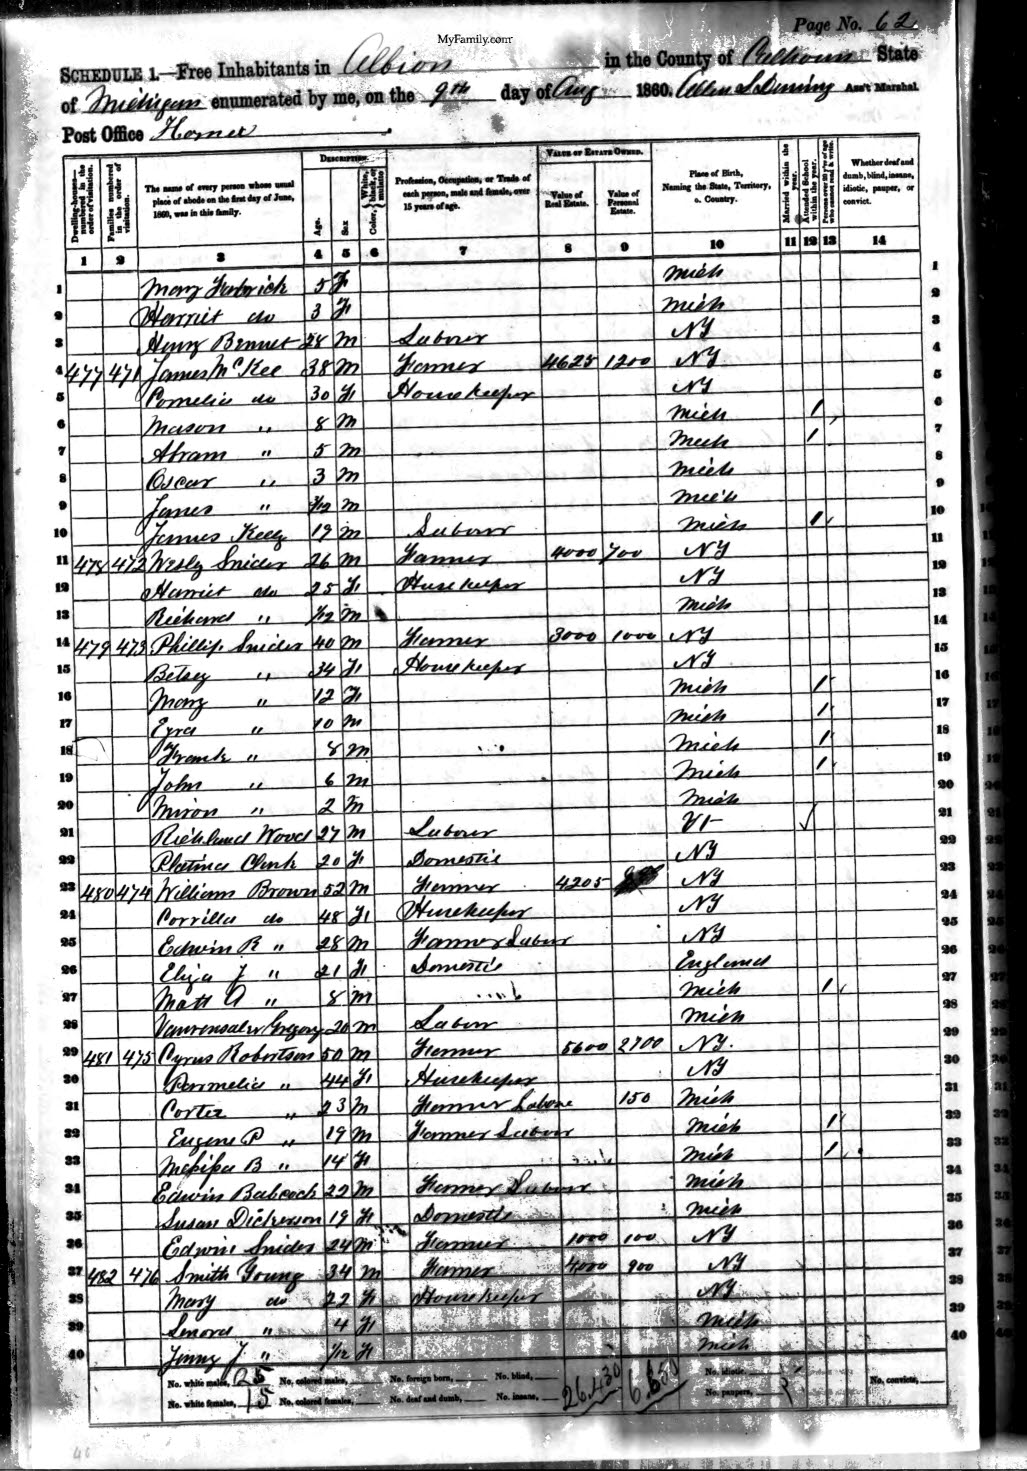 MyFamily.com
Page No. 62
SCHEDULE 1.—Free Inhabitants in Albion in the County of Calhoun State
of Michigan enumerated by me, on the 9th day of Aug 1860. Ass't Marshal.
Post Office Homer
DESCRIPTION. VALUE OF ESTATE OWNED.
Dwelling-houses—numbered in the order of visitation. Families numbered in the order of visitation. The name of every person whose usual place of abode on the first day of June, 1860, was in this family. Age. Sex Color, White, black, or mulatto Profession, Occupation, or Trade of each person, male and female, over 15 years of age. Value of Real Estate. Value of Personal Estate. Place of Birth, Naming the State, Territory, or Country. Married within the year. Attended School within the year. Persons over 20 y'rs of age who cannot read & write. Whether deaf and dumb, blind, insane, idiotic, pauper, or convict.
1 2 3 4 5 6 7 8 9 10 11 12 13 14
1 Mary 5 F Mich 1
2 Harriet do 3 F Mich 2
3 Henry Bennet 28 M Labourer NY 3
4 477 471 James McKee 38 M Farmer 4628 1200 NY 4
5 Cornelia do 30 F Housekeeper NY 5
6 Mason " 8 M Mich 1 6
7 Abram " 5 M Mich 1 7
8 Oscar " 3 M Mich 8
9 James " M Mich 9
10 James Kelly 19 M Labour Mich 1 10
11 478 472 Wesly Snider 26 M Farmer 4000 700 NY 11
12 Harriet do 25 F Housekeeper NY 12
13 Richard " 1/12 M Mich 13
14 479 473 Phillip Snider 40 M Farmer 3000 1000 NY 14
15 Betsey " 34 F Housekeeper NY 15
16 Mary " 12 F Mich 1 16
17 Ezra " 10 M Mich 1 17
18 Frank " 8 M Mich 1 18
19 John " 6 M Mich 1 19
20 Miron " 2 M Mich 20
21 Wood 27 M Labourer Vt ✓ 21
22 Clark 20 F Domestic NY 22
23 480 474 William Brown 52 M Farmer 4205 NY 23
24 Corrilla do 48 F Housekeeper NY 24
25 Edwin R " 28 M Farmer Labour NY 25
26 Eliza J " 21 F Domestic England 26
27 Matt A " 8 M Mich 1 27
28 Vanrensaler Gregory 20 M Labour Mich 28
29 481 475 Cyrus Robertson 50 M Farmer 5600 2700 NY. 29
30 Parmelia " 44 F Housekeeper NY 30
31 Cortez " 23 M Farmer Labore 150 Mich 31
32 Eugene P " 19 M Farmer Labour Mich 1 32
33 B " 14 F Mich 1 33
34 Edwin Babcock 22 M Farmer Labour Mich 34
35 Susan Dickerson 19 F Domestic Mich 35
36 Edwin Snider 24 M Farmer 1000 100 NY 36
37 482 476 Smith Young 34 M Farmer 4000 900 NY 37
38 Mary do 22 F Housekeeper NY 38
39 Lenora " 4 F Mich 39
40 Jenny J " 1/12 F Mich 40
No. white males, 25 No. colored males, No. foreign born, No. blind, 26,430 No. idiotic No. convicts,
No. white females, 15 No. colored females, No. deaf and dumb, No. insane, No. paupers,